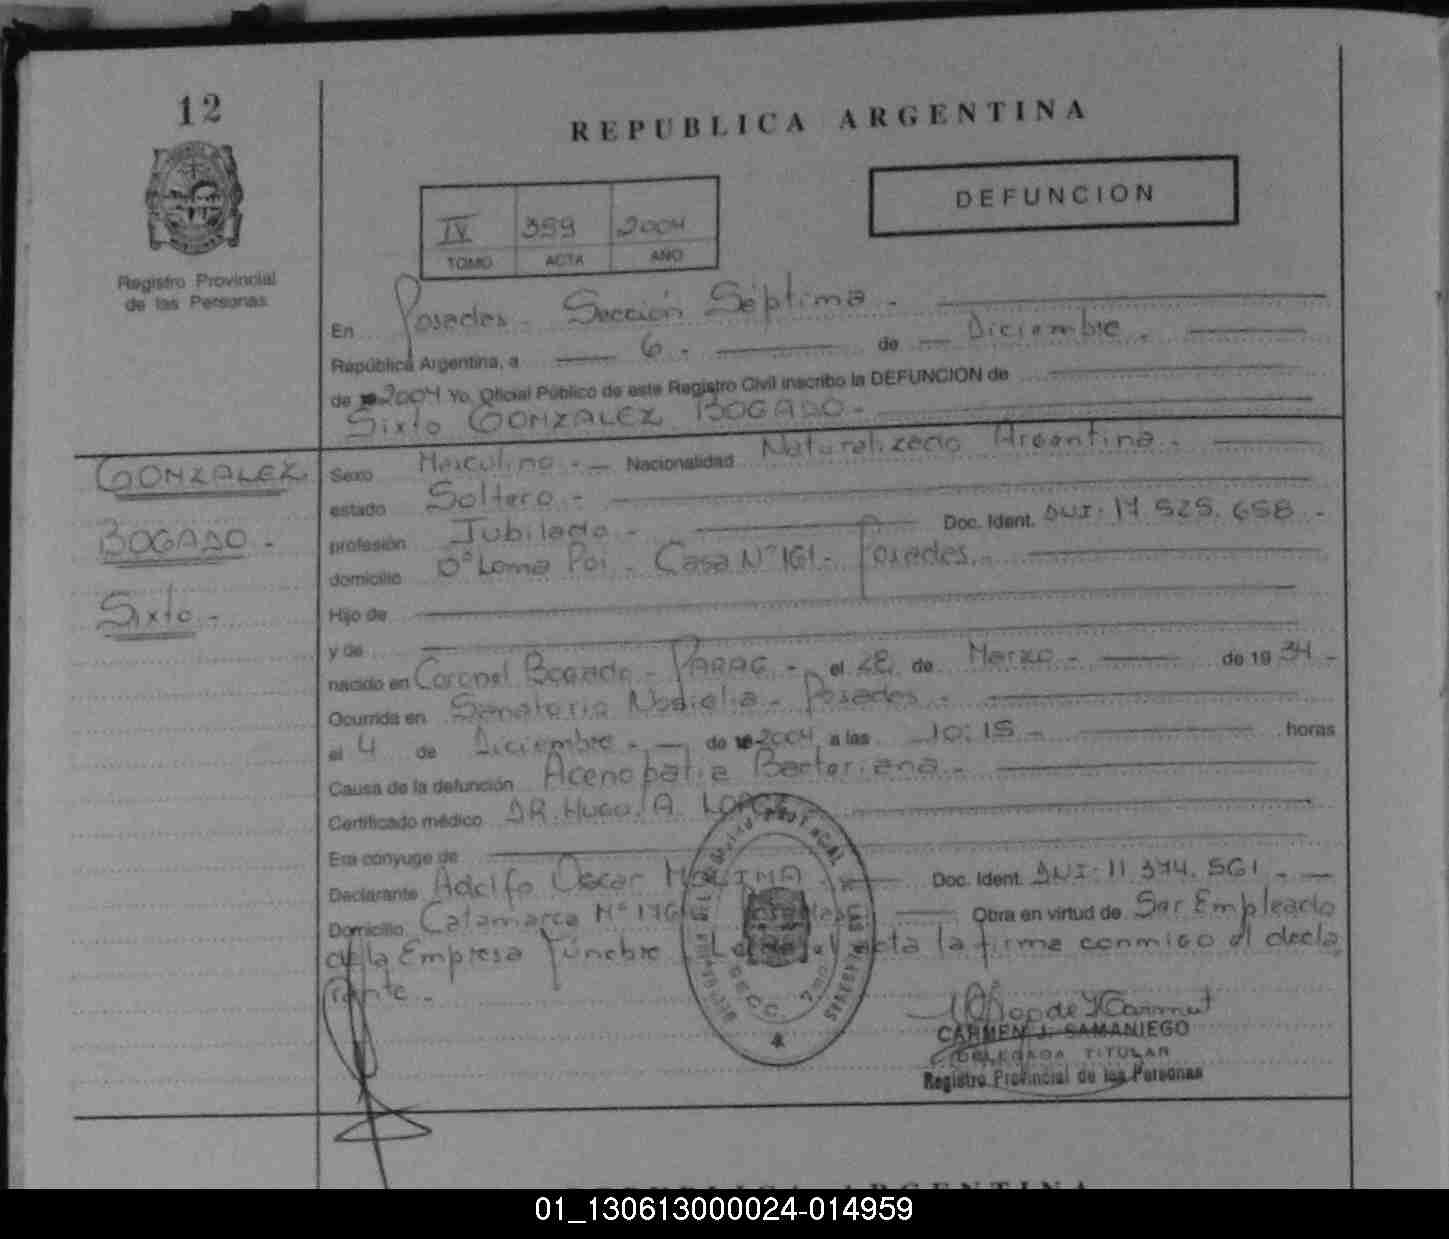 12
REPUBLICA ARGENTINA
DEFUNCION
IV 359 2004
TOMO ACTA AÑO
Registro Provincial
de las Personas
En Posadas - Sección Séptima -
República Argentina, a 6 - de Diciembre -
de 2004 Yo, Oficial Público de este Registro Civil inscribo la DEFUNCION de
Sixto GONZALEZ BOGADO -
GONZALEZ
BOGADO -
Sixto -
Sexo Masculino - Nacionalidad Naturalizado Argentina -
estado Soltero -
profesión Jubilado - Doc. Ident. DNI. 17.525.658 -
domicilio Bº Loma Poi - Casa Nº 161 - Posadas -
Hijo de
y de
nacido en Coronel Bogado - PARAG - el 28 de Marzo - de 19 34 -
Ocurrida en Sanatorio - Posadas -
el 4 de Diciembre - de 2004 a las 10:15 - horas
Causa de la defunción Bacteriana -
Certificado médico DR. HUGO A. LOPEZ
Era cónyuge de
Declarante Adolfo Oscar MOLINA - Doc. Ident. DNI. 11.374.561 -
Domicilio Catamarca Nº Obra en virtud de Ser Empleado
de la Empresa Fúnebre acta la firma conmigo el decla
rante -
CARMEN J. SAMANIEGO
DELEGADA TITULAR
Registro Provincial de las Personas
REPUBLICA ARGENTINA
01_130613000024-014959